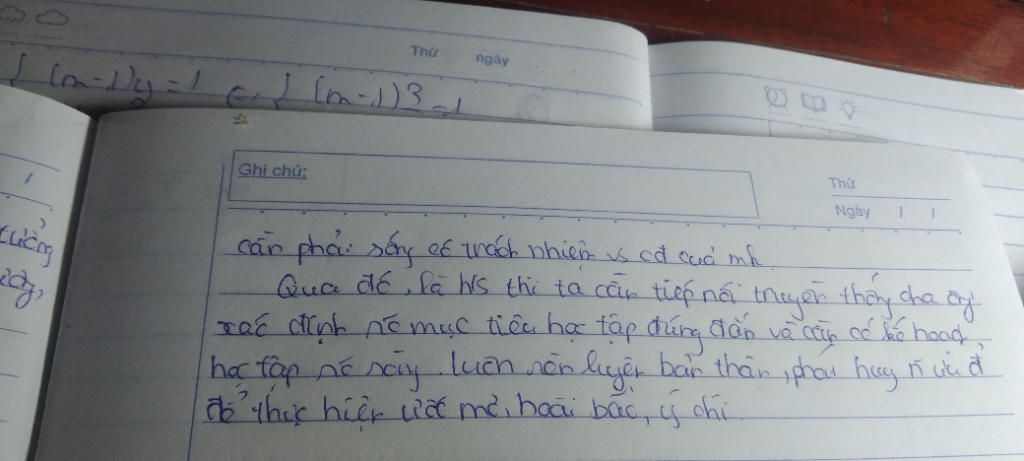 Thứ ngày
{ (m-1)y = 1 ⇔ { (m-1)3 = 1
Ghi chú:
Thứ
Ngày / /
tưởng
cần phải sống có trách nhiệm vs cđ của mh
Qua đó, là h/s thì ta cần tiếp nối truyền thống cha ông
xác định rõ mục tiêu học tập đúng đắn và cần có kế hoạch,
học tập rõ ràng. luôn rèn luyện bản thân, phát huy n ưu đ
để thực hiện ước mơ, hoài bão, ý chí.